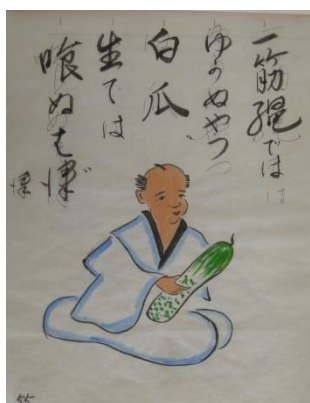 一筋縄では
は
ゆかぬやつ
白瓜
生では
喰ぬ